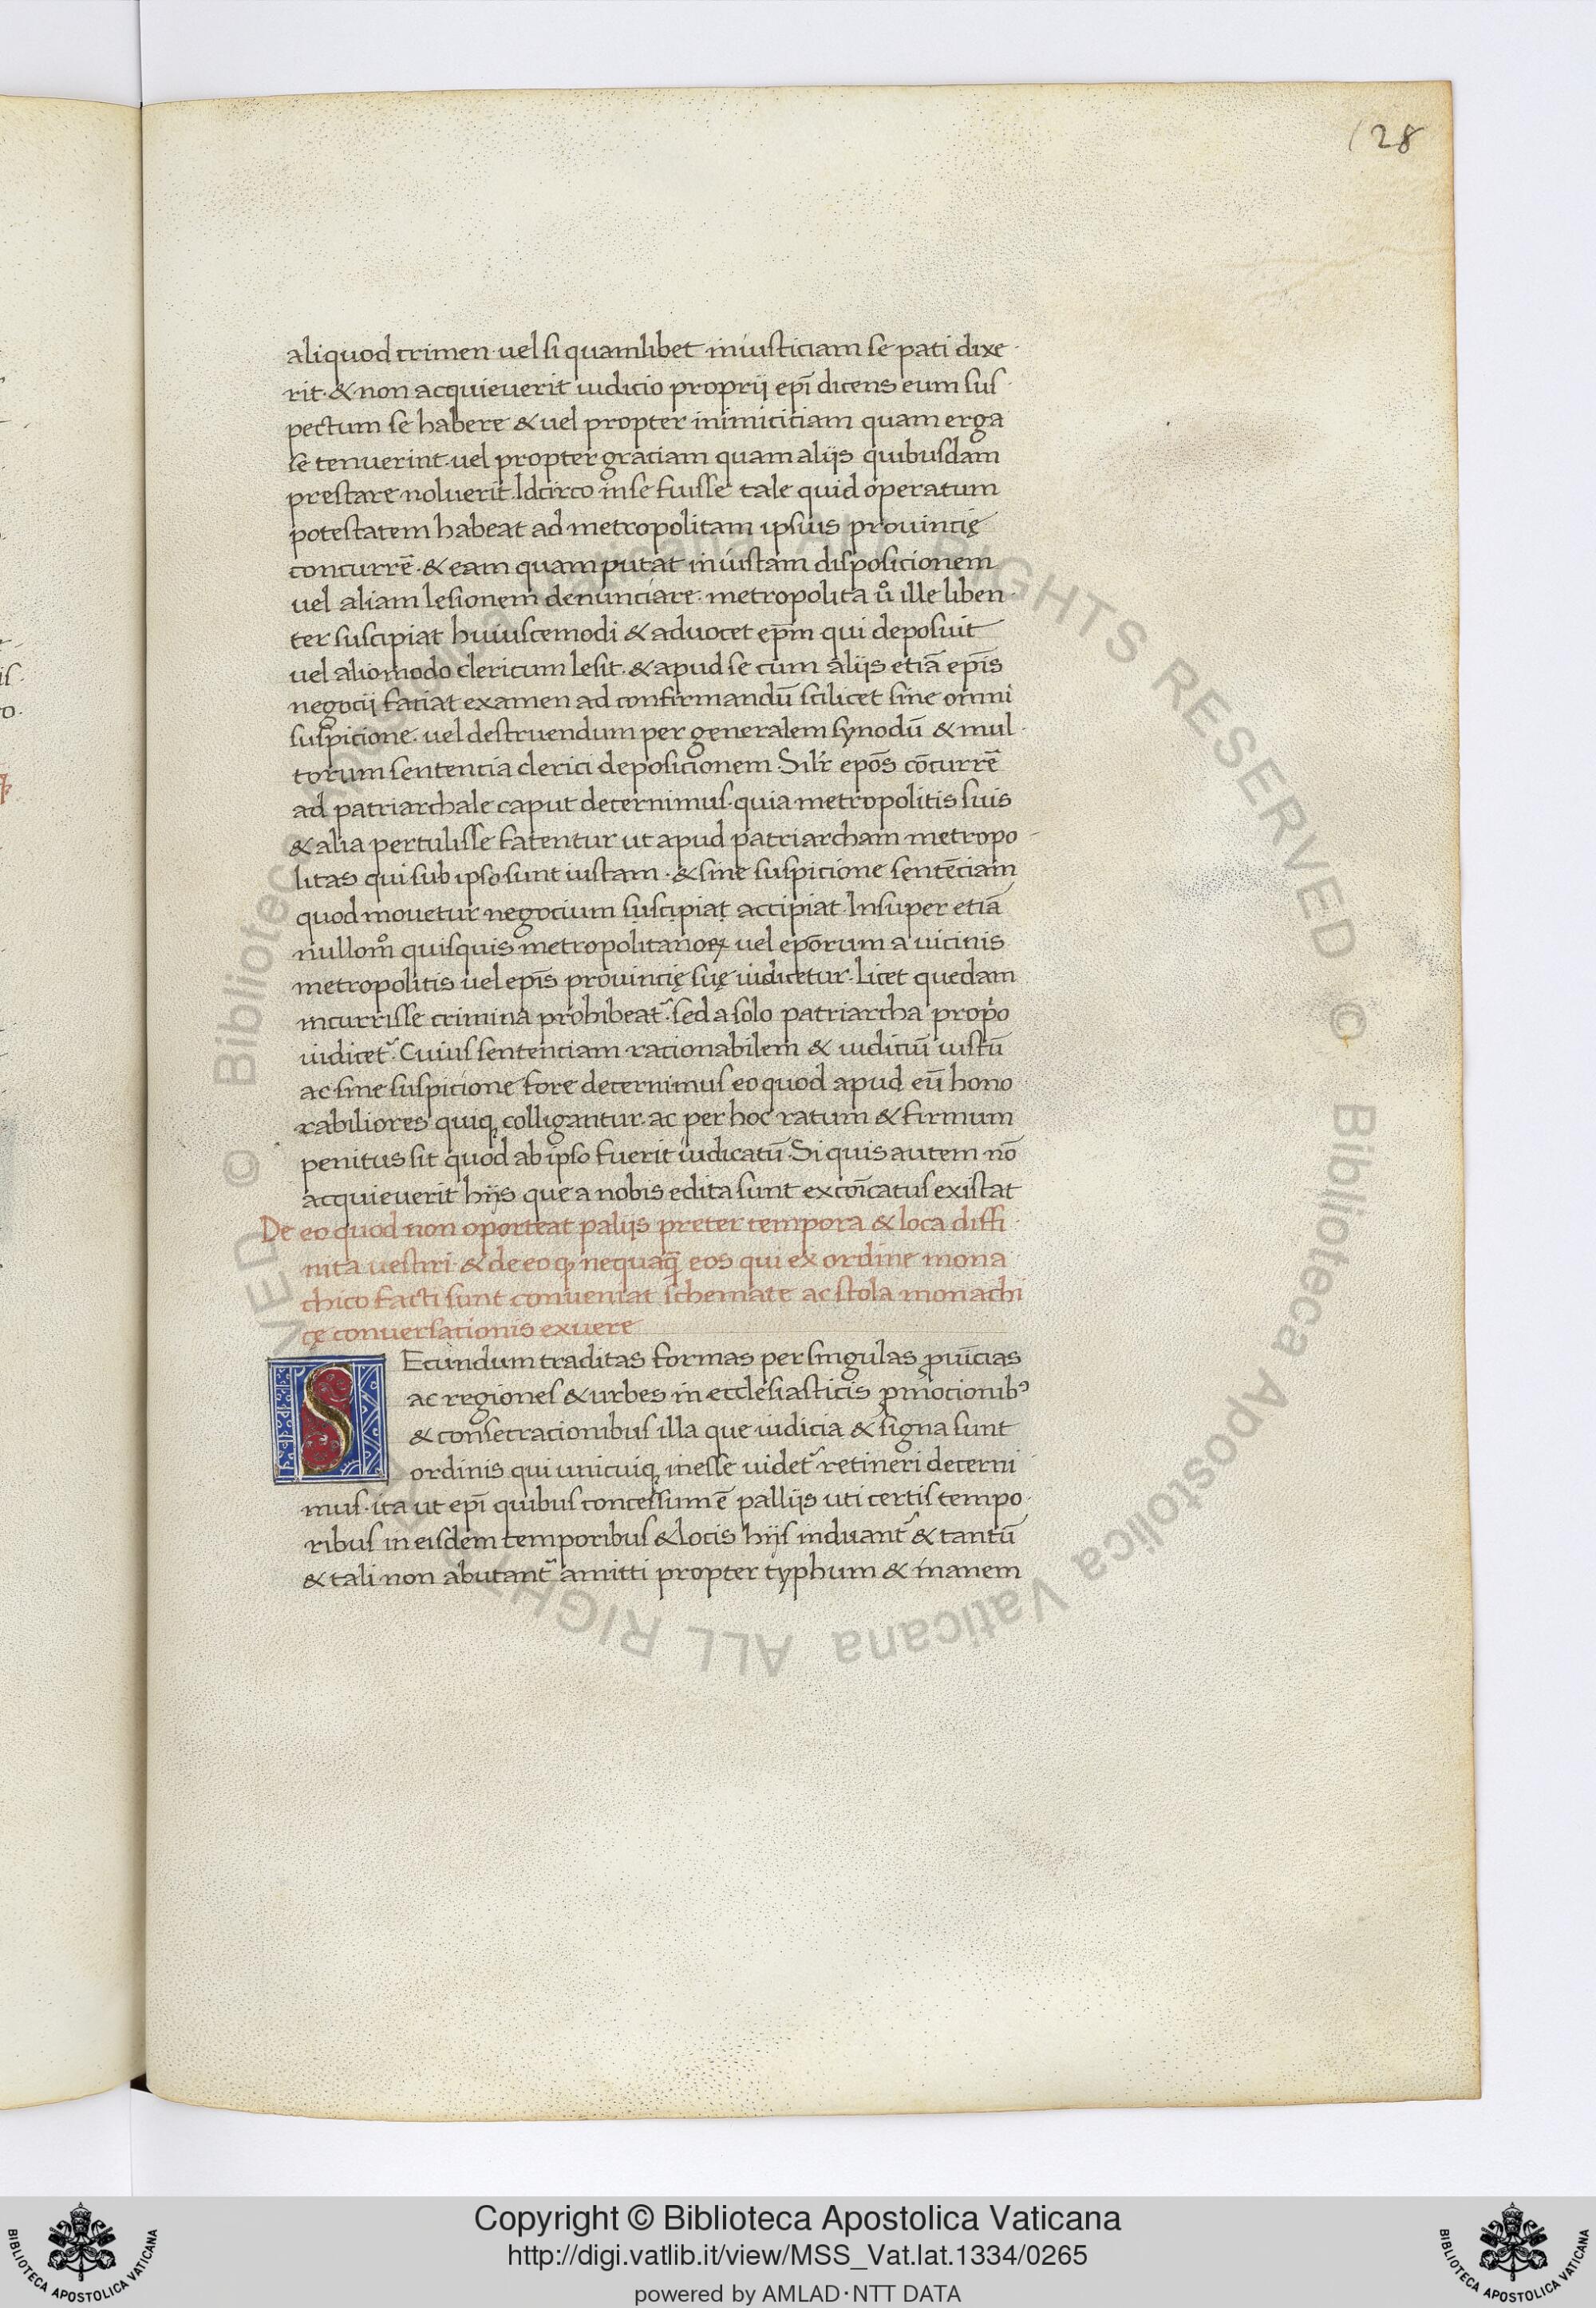 128
aliquod crimen· uel si quamlibet iniusticiam se pati dixe-
rit· & non acquieuerit iudicio proprij epī dicens eum sus-
pectum se habere & uel propter inimiciciam quam erga
se tenuerint· uel propter graciam quam aliis quibusdam
prestare noluerit. Idcirco in se fuisse tale quid operatum
potestatem habeat ad metropolitam ipsius prouincię
concurrē· & eam quam putat iniustam disposicionem
uel aliam lesionem denunciare· metropolita uͦ ille liben-
ter suscipiat huiuscemodi & aduocet ep̄m qui deposuit
uel alio modo clericum lesit· & apud se cum aliis etiā ep̄is
negocij faciat examen ad confirmandū scilicet sine omni
suspicione· uel destruendum per generalem synodū & mul-
torum sentencia clerici deposicionem· Silr̄ epōs cōcurrē
ad patriarchale caput decernimus· quia metropolitis suis
& alia pertulisse fatentur ut apud patriarcham metropo-
litas qui sub ipso sunt iustam· & sine suspicione sentēciam
quod mouetur negocium suscipiat accipiat· Insuper etiā
nullomͦ quisquis metropolitanoꝝ uel epōrum a uicinis
metropolitis uel ep̄is prouincię suę iudicetur· licet quedam
incurrisse crimina prohibeat᷑· sed a solo patriarcha prop̍o
iudicet᷑· Cuius sentenciam racionabilem & iudiciū iustū
ac sine suspicione fore decernimus eo quod apud eū hono-
rabiliores quiqꝫ colligantur· ac per hoc ratum & firmum
penitus sit quod ab ipso fuerit iudicatū· Si quis autem nō
acquieuerit hijs que a nobis edita sunt excōicatus existat
De eo quod non oporteat paliis preter tempora & loca diffi-
nita uestiri· & de eo ꝙ nequaq̄ eos qui ex ordine mona
chico facti sunt conueniat schemate ac stola monachi
cę conuersationis exuere
SEcundum traditas formas per singulas ꝓuīcias
ac regiones & urbes in ecclesiasticis ꝓmocionibꝰ
& consecracionibus illa que iudicia & signa sunt
ordinis qui unicuiqꝫ inesse uidet᷑ retineri decerni
mus· ita ut epī quibus concessum ē palliis uti certis tempo-
ribus in eisdem temporibus & locis hijs induant᷑ & tantū
& tali non abutant᷑ amitti propter typhum & inanem
Copyright © Biblioteca Apostolica Vaticana
http://digi.vatlib.it/view/MSS_Vat.lat.1334/0265
powered by AMLAD·NTT DATA